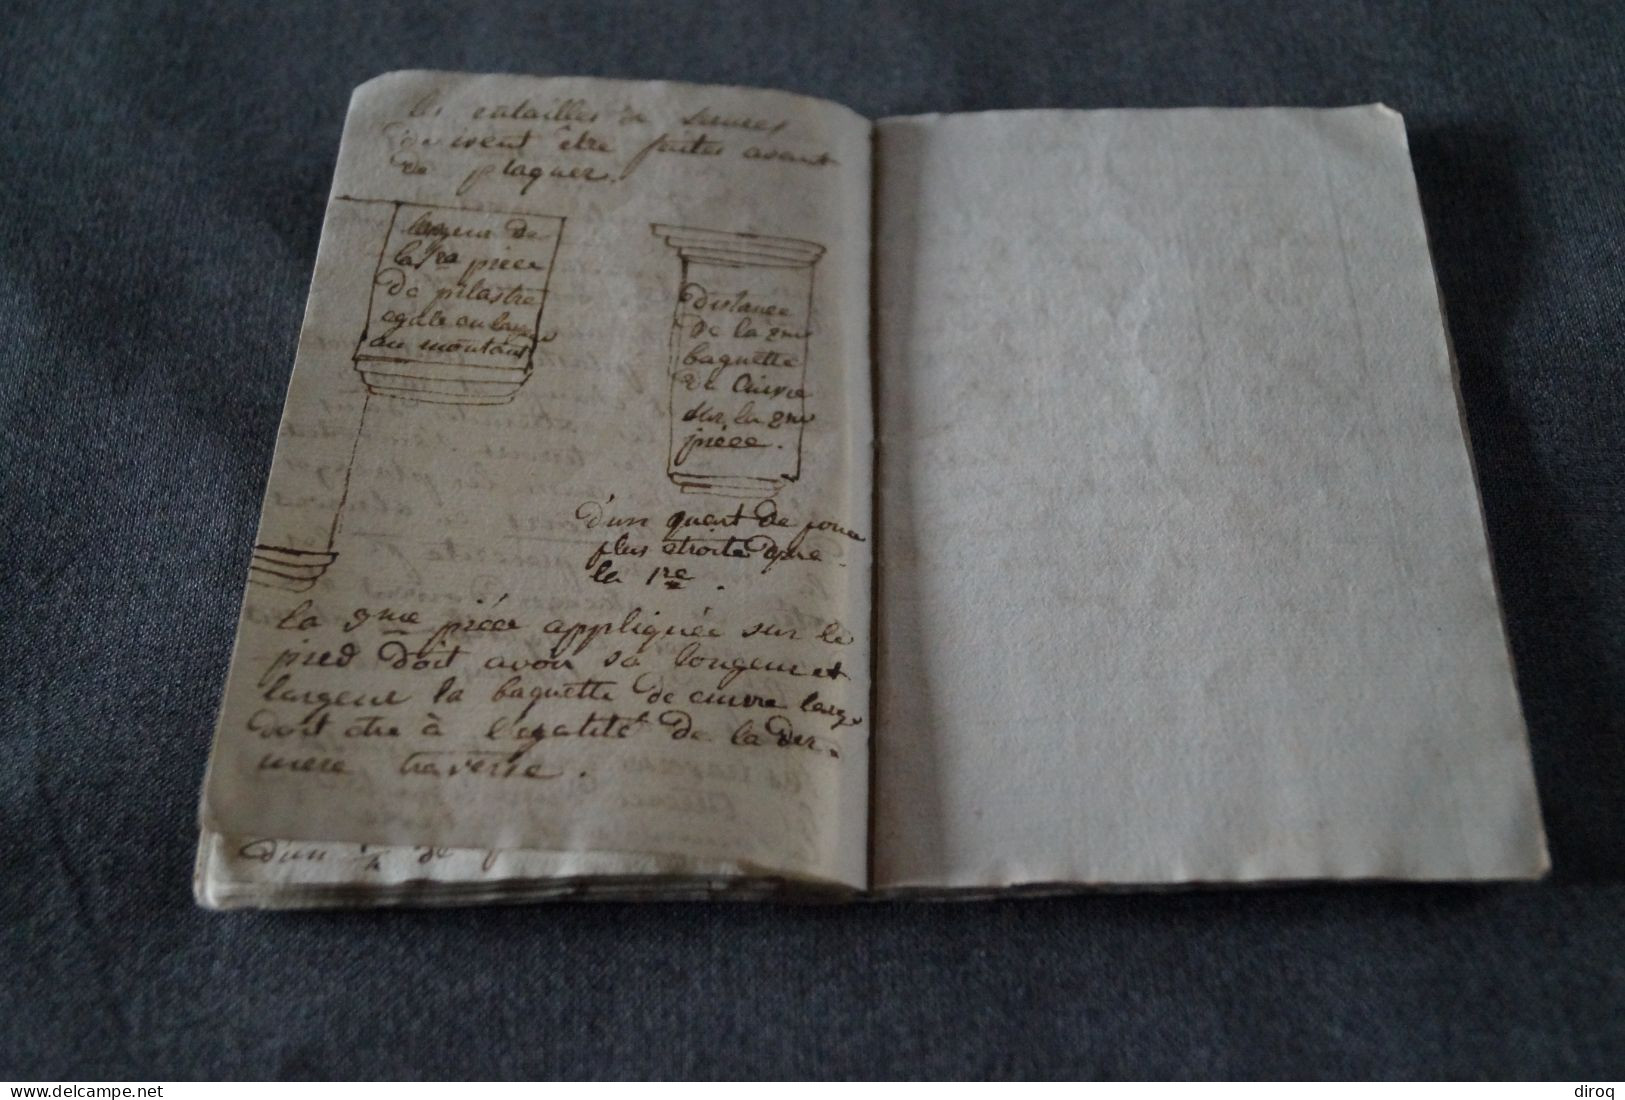 les entailles de serrures
doivent être faites avant
de plaquer.
largeur de
la 1re piece
de pilastre
egale en largeur
au montant
distance
de la 2me
baguette
de Cuivre
sur la 2me
piece.
d'un quart de pouce
plus etroite que
la 1re.
la 2me piéce appliquée sur le
pied doit avoir sa longeur et
largeur la baguette de cuivre large
doit etre à l'egalité de la der-
niere traverse.
d'un 1/4 de
© delcampe.net
diroq